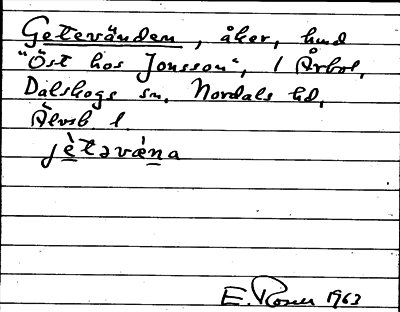 Getevänden, åker, hmd
"Öst hos Jonsson", i Årbol,
Dalskogs sn. Nordals hd,
Älvsb. l.
jètəvǽna
E. Rosen 1963